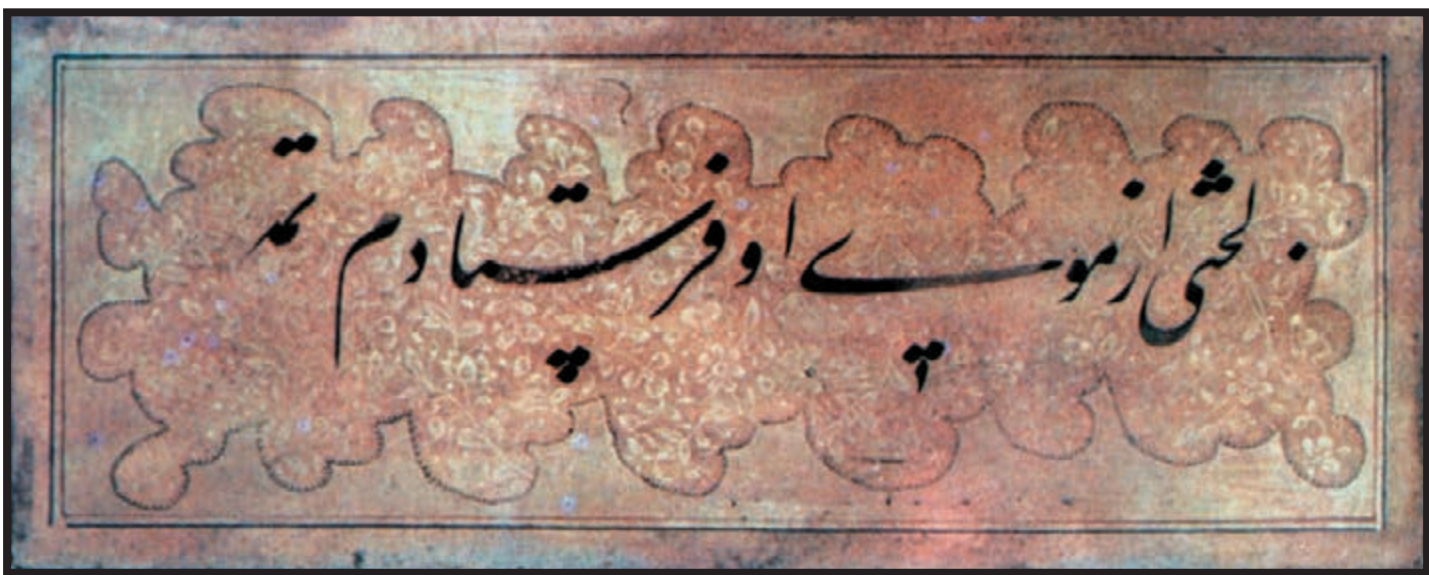 لختی از موی او فرستادم